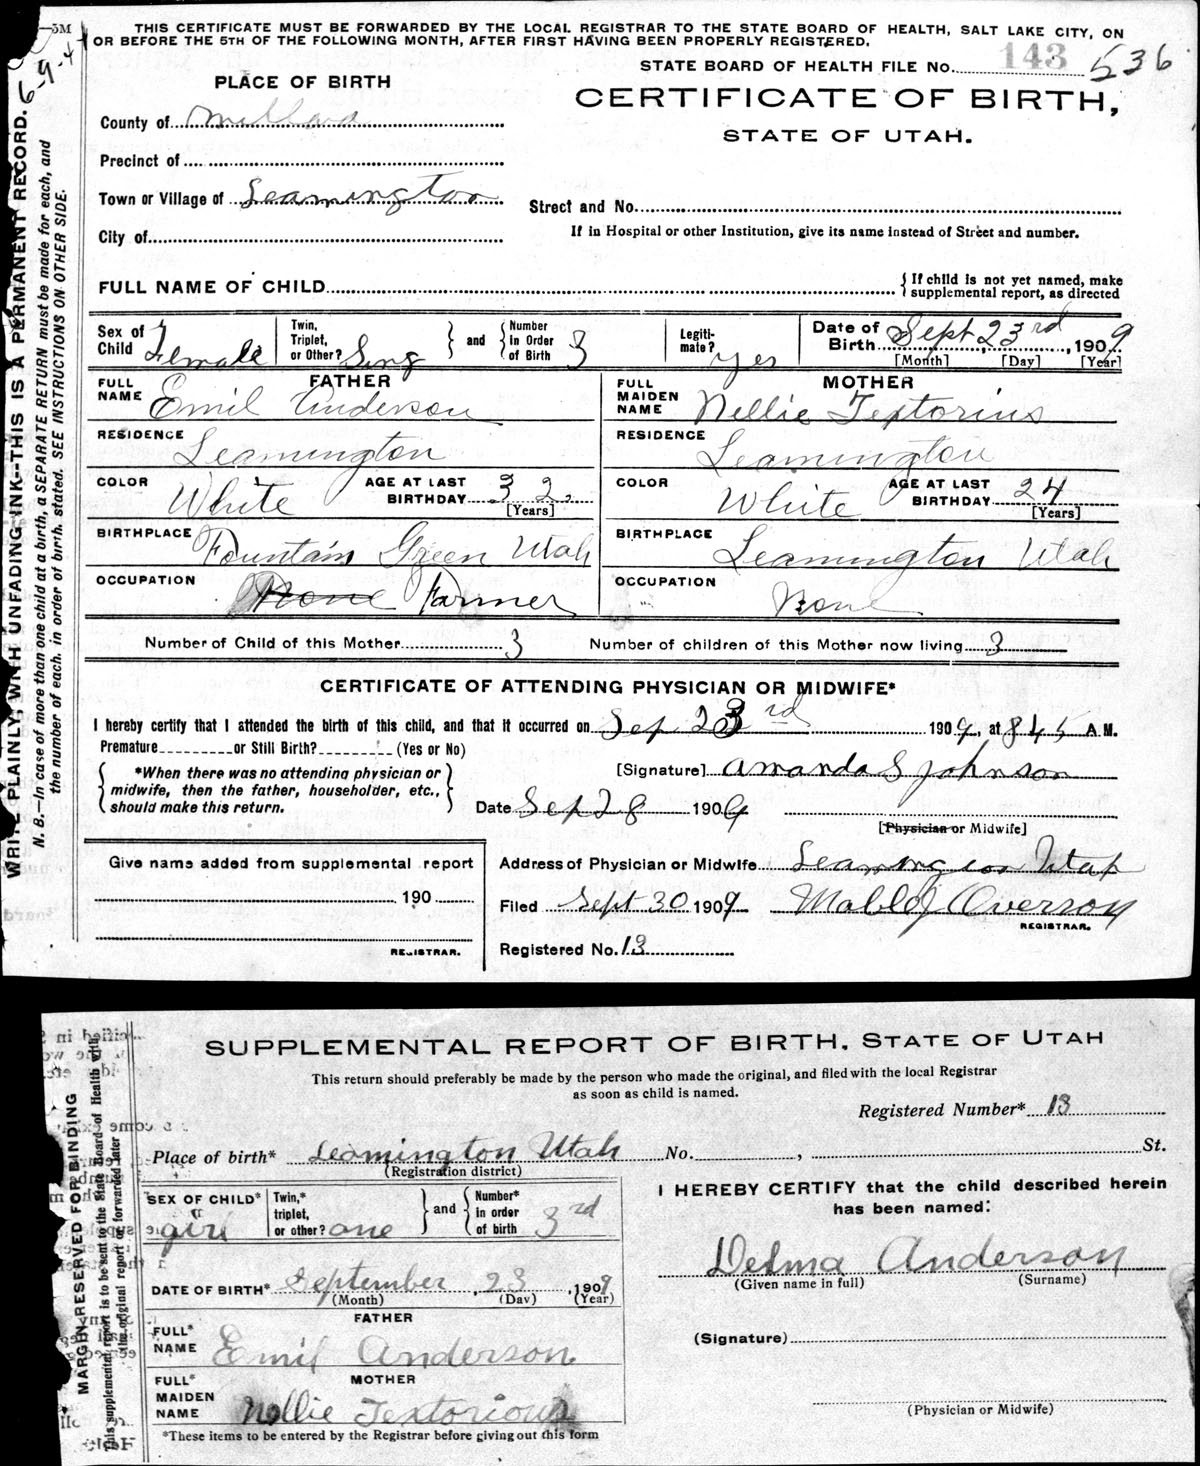 —5M
THIS CERTIFICATE MUST BE FORWARDED BY THE LOCAL REGISTRAR TO THE STATE BOARD OF HEALTH, SALT LAKE CITY, ON
OR BEFORE THE 5TH OF THE FOLLOWING MONTH, AFTER FIRST HAVING BEEN PROPERLY REGISTERED.
STATE BOARD OF HEALTH FILE No. 143 536
PLACE OF BIRTH
CERTIFICATE OF BIRTH,
STATE OF UTAH.
County of Millard
Precinct of
Town or Village of Leamington
Street and No.
City of
If in Hospital or other Institution, give its name instead of Street and number.
FULL NAME OF CHILD
{If child is not yet named, make
supplemental report, as directed
Sex of Child Female
Twin, Triplet, or Other? Sing
and
Number in Order of Birth 3
Legiti-mate? yes
Date of Birth Sept 23rd, 1909
[Month] [Day] [Year]
FATHER
FULL NAME Emil Anderson
MOTHER
FULL MAIDEN NAME Nellie Textorius
RESIDENCE Leamington
RESIDENCE Leamington
COLOR White AGE AT LAST BIRTHDAY 32 [Years]
COLOR White AGE AT LAST BIRTHDAY 24 [Years]
BIRTHPLACE Fountain Green Utah
BIRTHPLACE Leamington Utah
OCCUPATION None Farmer
OCCUPATION None
Number of Child of this Mother 3
Number of children of this Mother now living 3
CERTIFICATE OF ATTENDING PHYSICIAN OR MIDWIFE*
I hereby certify that I attended the birth of this child, and that it occurred on Sep 23rd 1909, at 845 A.M.
Premature or Still Birth? (Yes or No)
*When there was no attending physician or
midwife, then the father, householder, etc.,
should make this return.
[Signature] Amanda S Johnson
Date Sep 28 1909
[Physician or Midwife]
Give name added from supplemental report
190
REGISTRAR.
Address of Physician or Midwife Leamington Utah
Filed Sept 30 1909 Overson
REGISTRAR.
Registered No. 13
WRITE PLAINLY, WITH UNFADING INK--THIS IS A PERMANENT RECORD. 6-9-4
N. B.—In case of more than one child at birth, a SEPARATE RETURN must be made for each, and
the number of each, in order of birth, stated. SEE INSTRUCTIONS ON OTHER SIDE.
SUPPLEMENTAL REPORT OF BIRTH, STATE OF UTAH
This return should preferably be made by the person who made the original, and filed with the local Registrar
as soon as child is named.
Registered Number* 13
Place of birth* Leamington Utah No. , St.
(Registration district)
SEX OF CHILD* girl
Twin,* triplet, or other? one
and
Number* in order of birth 3rd
I HEREBY CERTIFY that the child described herein
has been named:
Delma Anderson
(Given name in full) (Surname)
DATE OF BIRTH* September, 23, 1909
(Month) (Day) (Year)
FATHER
FULL* NAME Emil Anderson
(Signature)
MOTHER
FULL* MAIDEN NAME Nellie Textorious
(Physician or Midwife)
*These items to be entered by the Registrar before giving out this form
MARGIN RESERVED FOR BINDING
This supplemental report is to be sent to the State Board of Health with
the original report or forwarded later